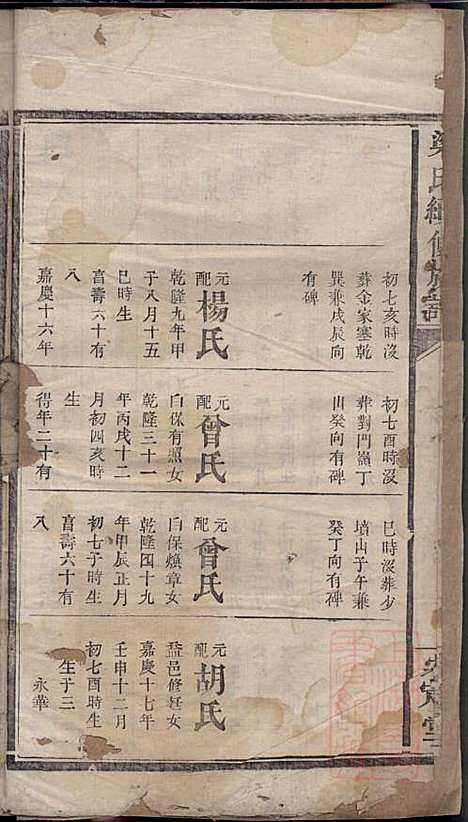 梁氏續修族譜
初七亥時沒
葬金家塞乾
巽兼戌辰向
有碑
元配楊氏
乾隆九年甲
于八月十五
巳時生
享壽六十有
八
嘉慶十六年
初七酉時沒
葬對門嶺丁
山癸向有碑
元配曾氏
白保有照女
乾隆三十一
年丙戌十二
月初四亥時
生
得年二十有
巳時沒葬少
墳山子午兼
癸丁向有碑
元配曾氏
白保煥章女
乾隆四十九
年甲辰正月
初七子時生
享壽六十有
八
元配胡氏
益邑修廷女
嘉慶十七年
壬申十二月
初七酉時生
生子三
永華
定堂